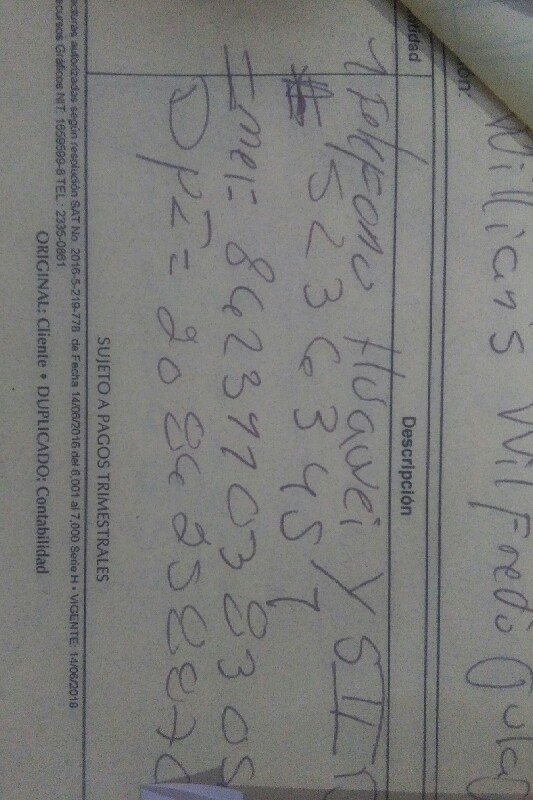 Willians Wilfredo
Descripción
1 Telefono Huawei Y5II
# 52363457
Imei= 862391103830
DPI= 20862588
SUJETO A PAGOS TRIMESTRALES
facturas autorizadas según resolución SAT No. 2016-5-219-778 de Fecha 14/06/2016 del 6,001 al 7,000 Serie H • VIGENTE: 14/06/2018
Recursos Gráficos NIT: 1659599-8 TEL.: 2335-0861
ORIGINAL: Cliente • DUPLICADO: Contabilidad